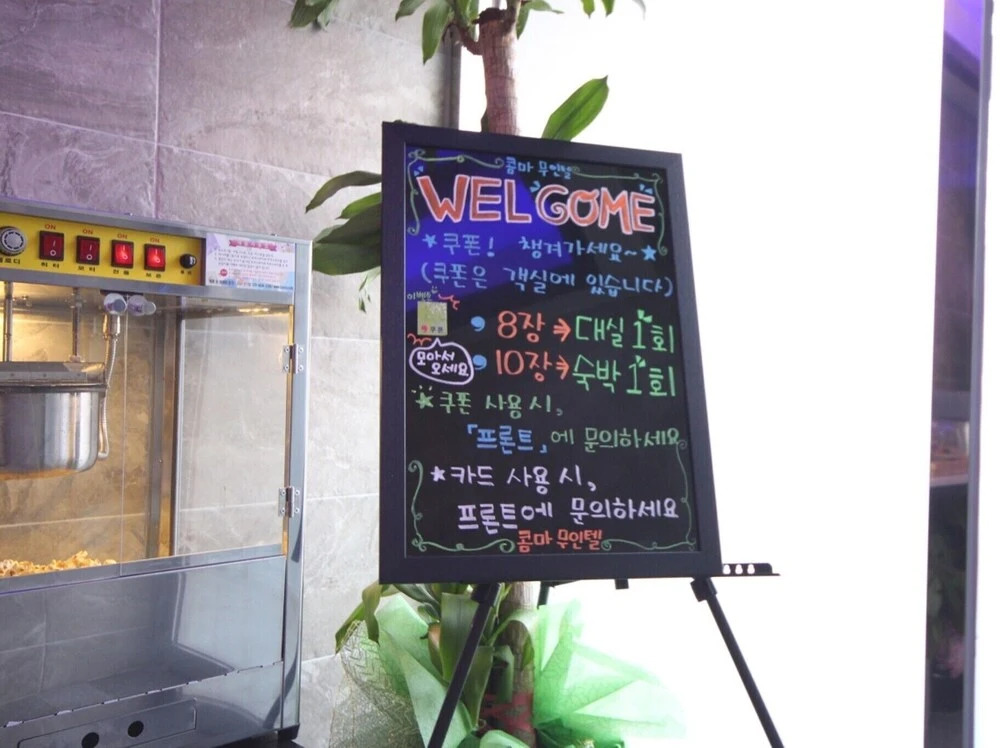 ON ON ON ON
히터 모터 전등 보온
콤마 무인텔
WELCOME
★쿠폰! 챙겨가세요~★
(쿠폰은 객실에 있습니다)
이벤트
쿠폰
, 8장→대실 1회
모아서
오세요
, 10장→숙박 1회
★쿠폰 사용 시,
「프론트」에 문의하세요
★카드 사용 시,
프론트에 문의하세요
콤마 무인텔